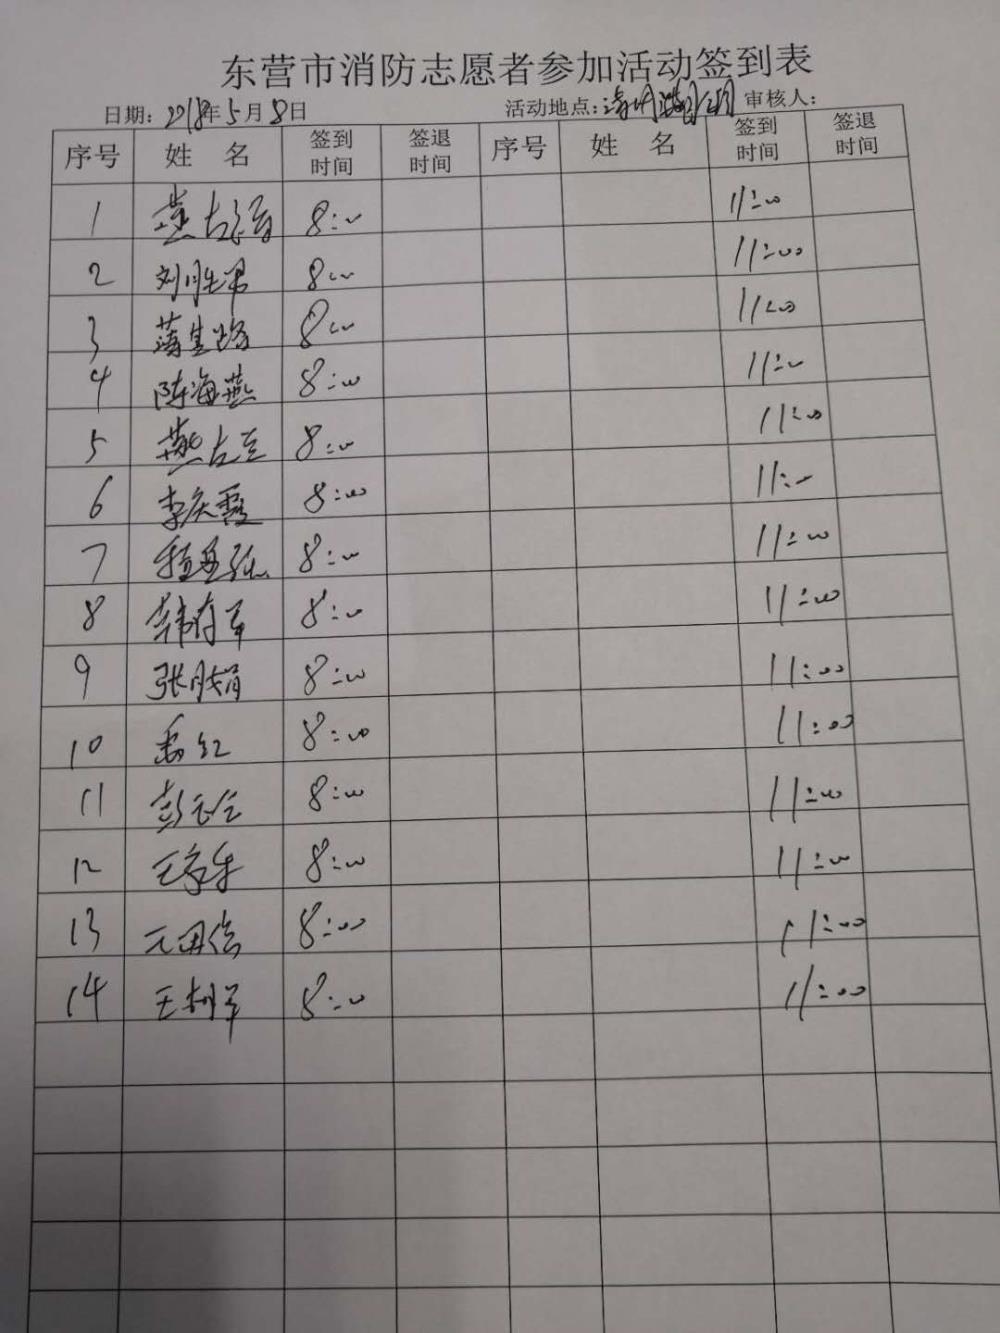 东营市消防志愿者参加活动签到表
日期: 2018年5月8日 活动地点: 审核人:
序号 姓 名 签到时间 签退时间 序号 姓 名 签到时间 签退时间
1 8:00 11:00
2 刘胜军 8:00 11:00
3 8:00 11:00
4 陈海燕 8:00 11:00
5 8:00 11:00
6 李庆霞 8:00 11:00
7 8:00 11:00
8 韩存军 8:00 11:00
9 张月娟 8:00 11:00
10 8:00 11:00
11 8:00 11:00
12 8:00 11:00
13 8:00 11:00
14 王树军 8:00 11:00